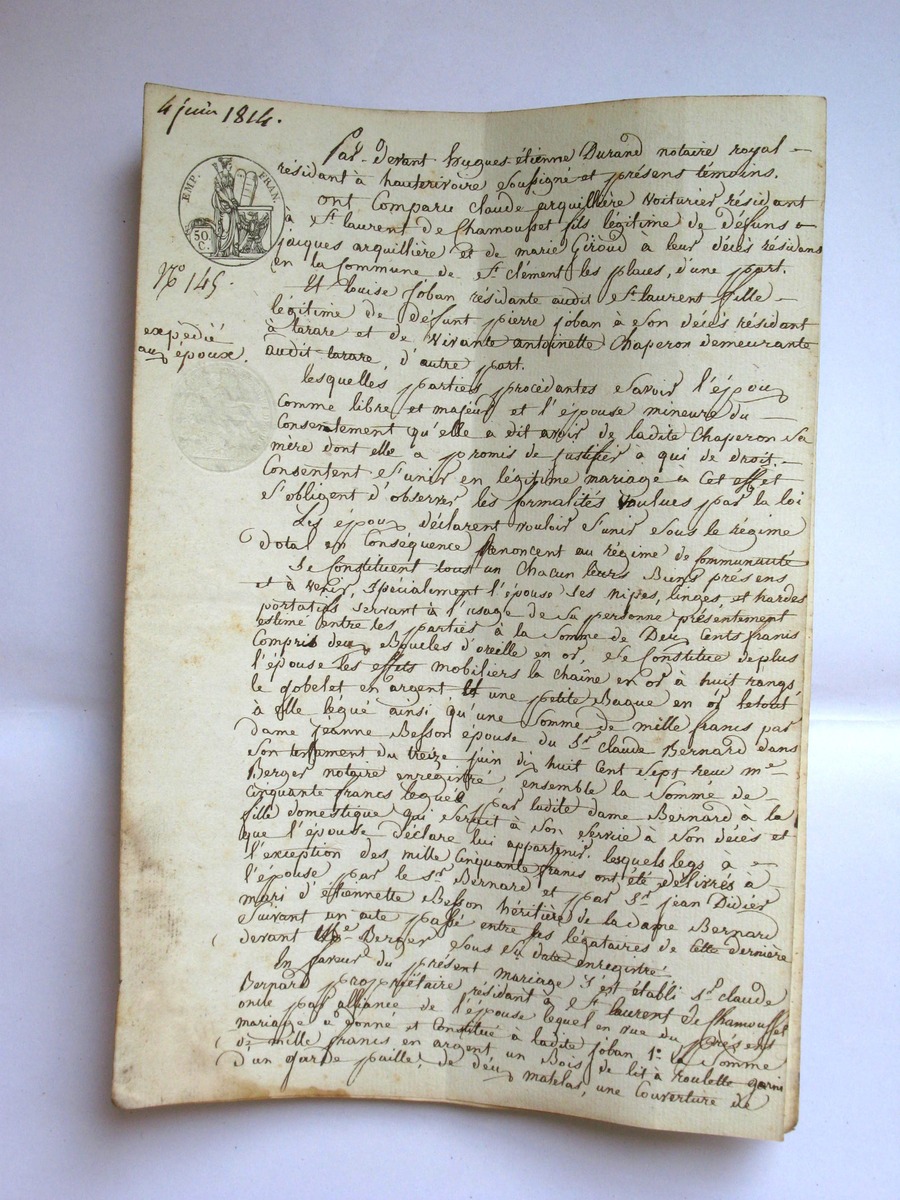 4 juin 1814.
EMP. FRAN.
50 C.
No 145.
expédié
aux époux.
Par-devant hugues-étienne Durand notaire royal
résidant à hauterivoire soussigné et présens témoins.
ont Comparu claude arquillière voiturier résidant
à St laurent de Chamousset fils légitime de défuns
jacques arquillière et de marie Giroud a leur décès résidans
en la Commune de St clément les places, d'une part.
Et Louise Joban résidante audit St laurent fille
légitime de défunt pierre joban à son décès résidant
à tarare et de vivante antoinette Chaperon demeurante
audit tarare, d'autre part.
lesquelles parties procédantes savoir l'époux
Comme libre et majeur et l'épouse mineure du
Consentement qu'elle a dit avoir de ladite Chaperon sa
mère dont elle a promis de justifier à qui de droit.
Consentent s'unir en légitime mariage à Cet effet
s'obligent d'observer les formalités voulues par la loi
Les époux déclarent vouloir s'unir sous le régime
Dotal en Conséquence renoncent au régime de Communauté
Se Constituent tous un Chacun leurs Biens présens
et à venir, Spécialement l'épouse ses nipes, linges, et hardes
portatifs servant à l'usage de sa personne présentement
estimé entre les parties à la somme de Deux Cents francs
Compris deux Boucles d'oreille en or, Se Constitue deplus
l'épouse les effets mobiliers la chaîne en or à huit rangs,
le gobelet en argent et une petite Bague en or letout
à elle légué ainsi qu'une Somme de mille francs par
dame jeanne Besson épouse du Sr claude Bernard dans
son testament du treize juin dix huit Cent Sept reçu me
Berger notaire enregistré, ensemble la Somme de
Cinquante francs leguée par ladite dame Bernard à la
fille domestique qui serait à son service à son décès et
que l'épouse déclare lui appartenir. lesquels legs à
l'exception des mille Cinquante francs ont été délivrés à
l'épouse par le sr Bernard et par Sr jean Didier
mari d'étiennette Besson héritière de la dame Bernard
suivant un acte passé entre les légataires de cette dernière
devant Me Berger sous sa date enregistré.
En faveur du présent mariage s'est établi Sr claude
Bernard propriétaire résidant à St laurent de Chamousset
oncle par alliance de l'épouse lequel en vue du présent
mariage a donné et Constitué à ladite joban 1o la Somme
de mille francs en argent un Bois de lit à roulette garni
d'un garde paille, de deux matelas, une Couverture de